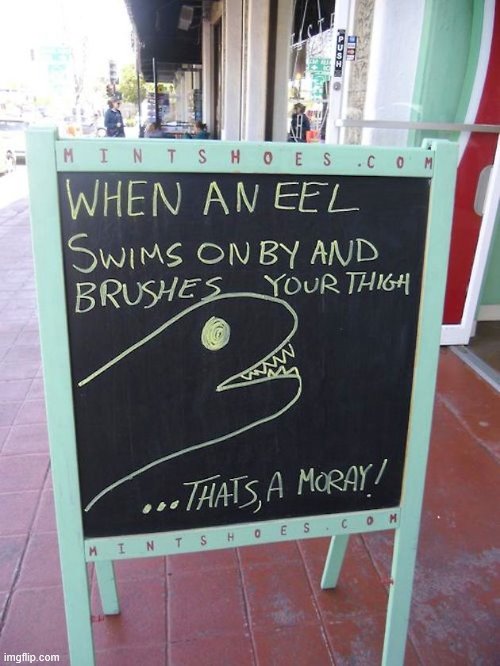 PUSH
MINTSHOES.COM
WHEN AN EEL
SWIMS ON BY AND
BRUSHES YOUR THIGH
...THATS, A MORAY!
MINTSHOES.COM
imgflip.com